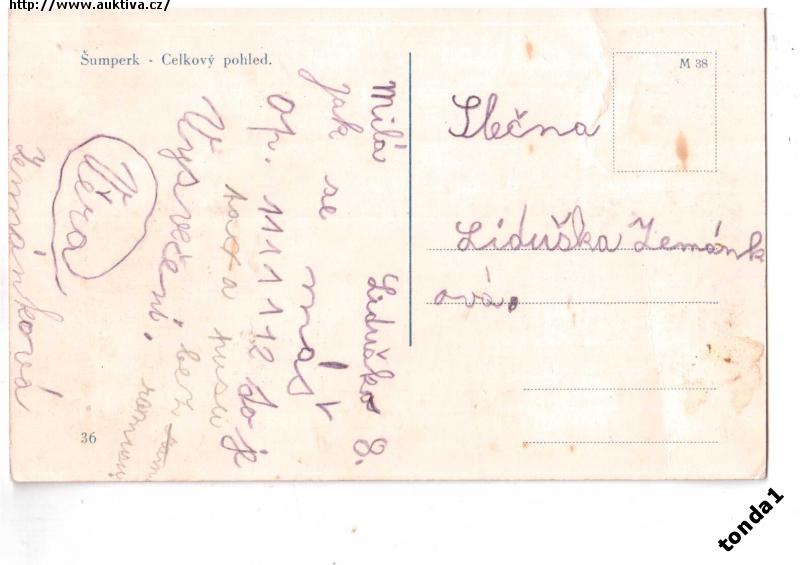 http://www.auktiva.cz/
Šumperk - Celkový pohled.
M 38
Milá Liduško 8.
jak se máš
op. 1111112 do je
Vysvěčení, bez
Věra
Zemánková
Slečna
Liduška Zemánk
ová.
36
tonda1